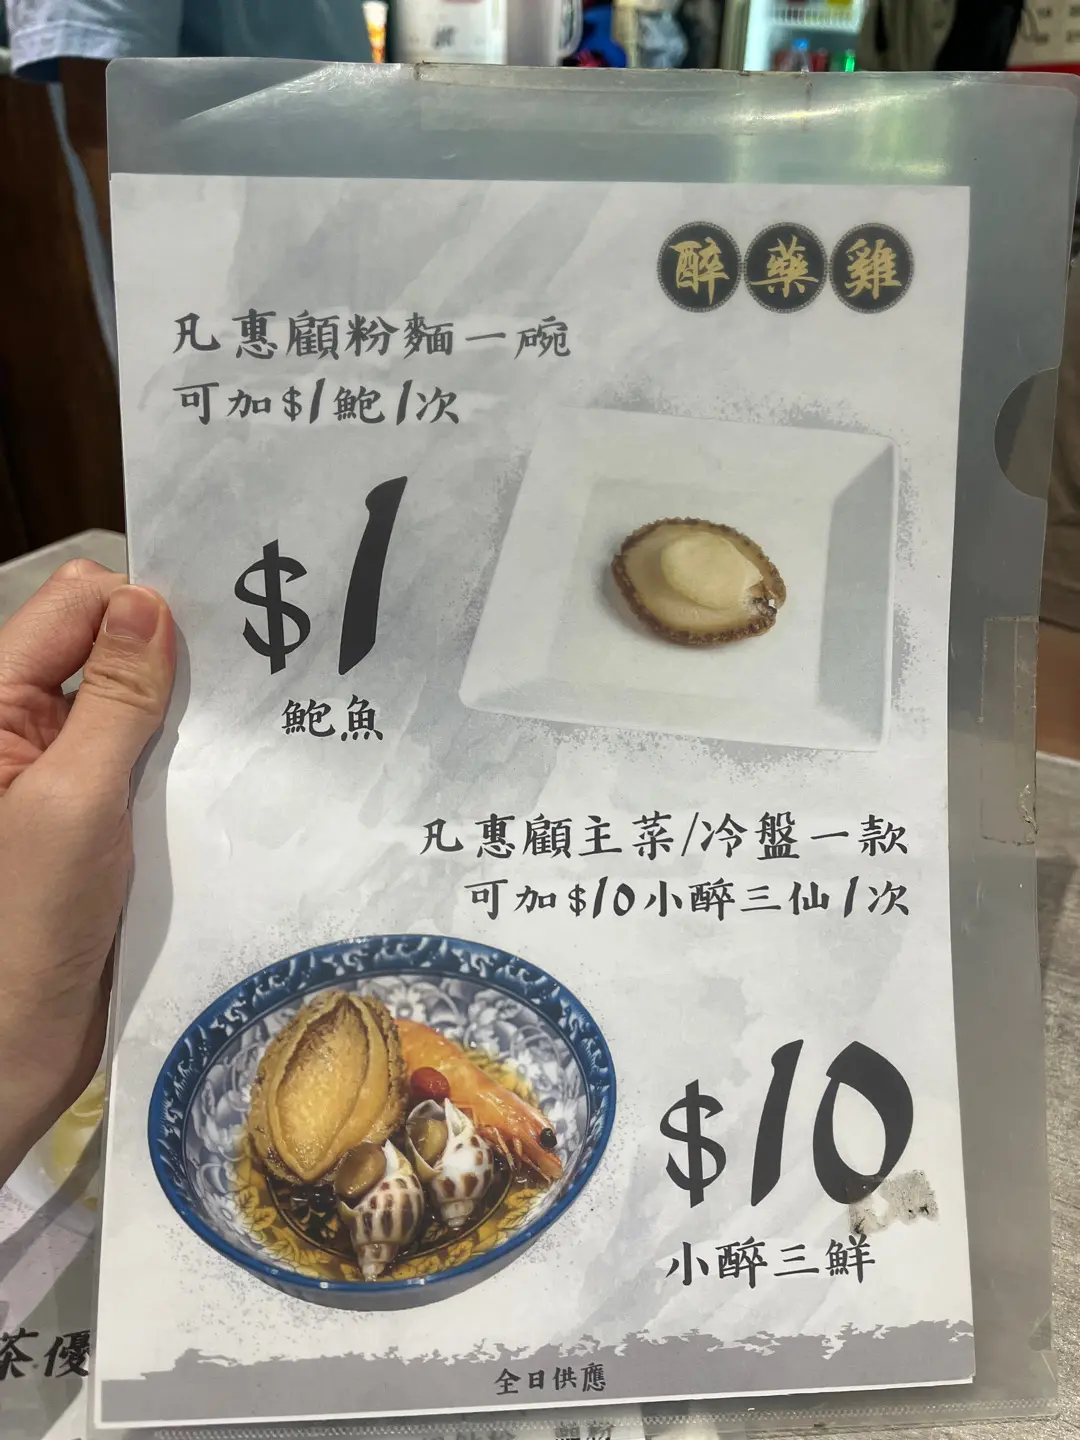 醉藥雞
凡惠顧粉麵一碗
可加$1鮑1次
$1
鮑魚
凡惠顧主菜/冷盤一款
可加$10小醉三仙1次
$10
小醉三鮮
全日供應
茶優